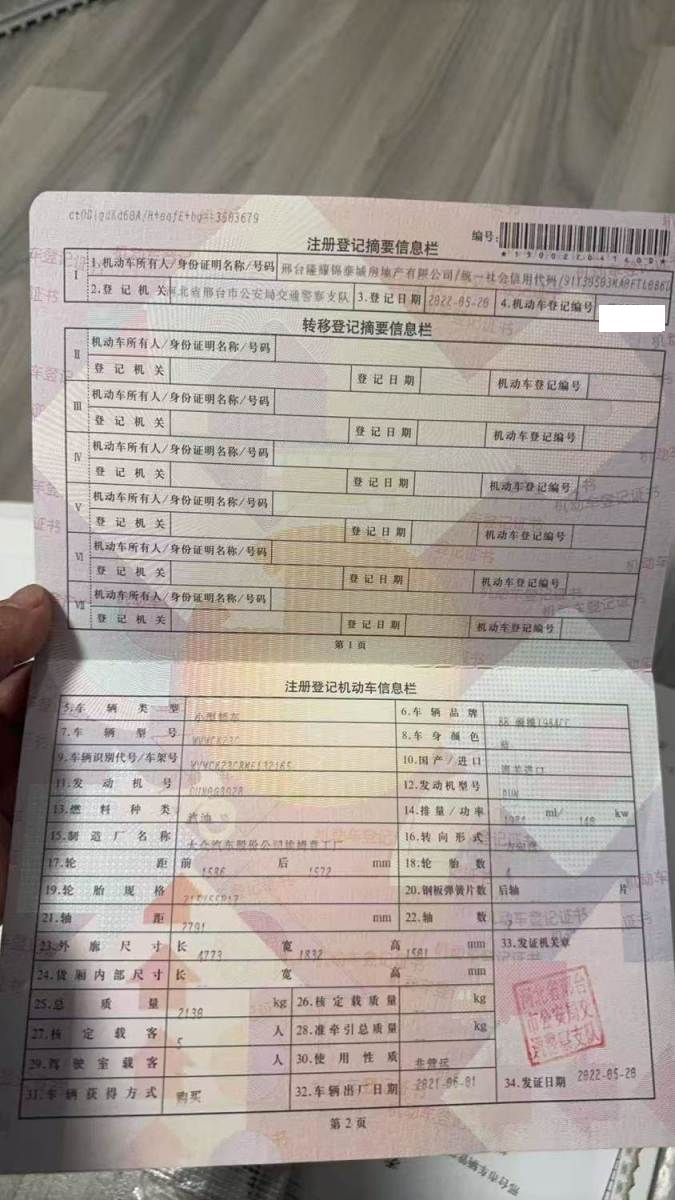 ctODiqdKd68A/H+eqfE+hg==3603679
编号:
*130022041600*
注册登记摘要信息栏
Ⅰ 1.机动车所有人/身份证明名称/号码 邢台隆耀锦泰城房地产有限公司/统一社会信用代码/
2.登记机关 河北省邢台市公安局交通警察支队 3.登记日期 2022-05-20 4.机动车登记编号
转移登记摘要信息栏
Ⅱ 机动车所有人/身份证明名称/号码
登记机关 登记日期 机动车登记编号
Ⅲ 机动车所有人/身份证明名称/号码
登记机关 登记日期 机动车登记编号
Ⅳ 机动车所有人/身份证明名称/号码
登记机关 登记日期 机动车登记编号
Ⅴ 机动车所有人/身份证明名称/号码
登记机关 登记日期 机动车登记编号
Ⅵ 机动车所有人/身份证明名称/号码
登记机关 登记日期 机动车登记编号
Ⅶ 机动车所有人/身份证明名称/号码
登记机关 登记日期 机动车登记编号
第1页
注册登记机动车信息栏
5.车辆类型 小型轿车 6.车辆品牌
7.车辆型号 8.车身颜色
9.车辆识别代号/车架号 10.国产/进口
11.发动机号 12.发动机型号 DUN
13.燃料种类 汽油 14.排量/功率 1984 ml/ kw
15.制造厂名称 大众汽车股份公司埃姆登工厂 16.转向形式 方向盘
17.轮距 前 1586 后 1572 mm 18.轮胎数 4
19.轮胎规格 20.钢板弹簧片数 后轴 片
21.轴距 2791 mm 22.轴数 2
23.外廓尺寸 长 4773 宽 1832 高 1501 mm 33.发证机关章
24.货厢内部尺寸 长 宽 高 mm
河北省邢台市公安局交通警察支队
25.总质量 2130 kg 26.核定载质量 kg
27.核定载客 5 人 28.准牵引总质量 kg
29.驾驶室载客 人 30.使用性质 非营运
31.车辆获得方式 购买 32.车辆出厂日期 2021-06-01 34.发证日期 2022-05-20
第2页